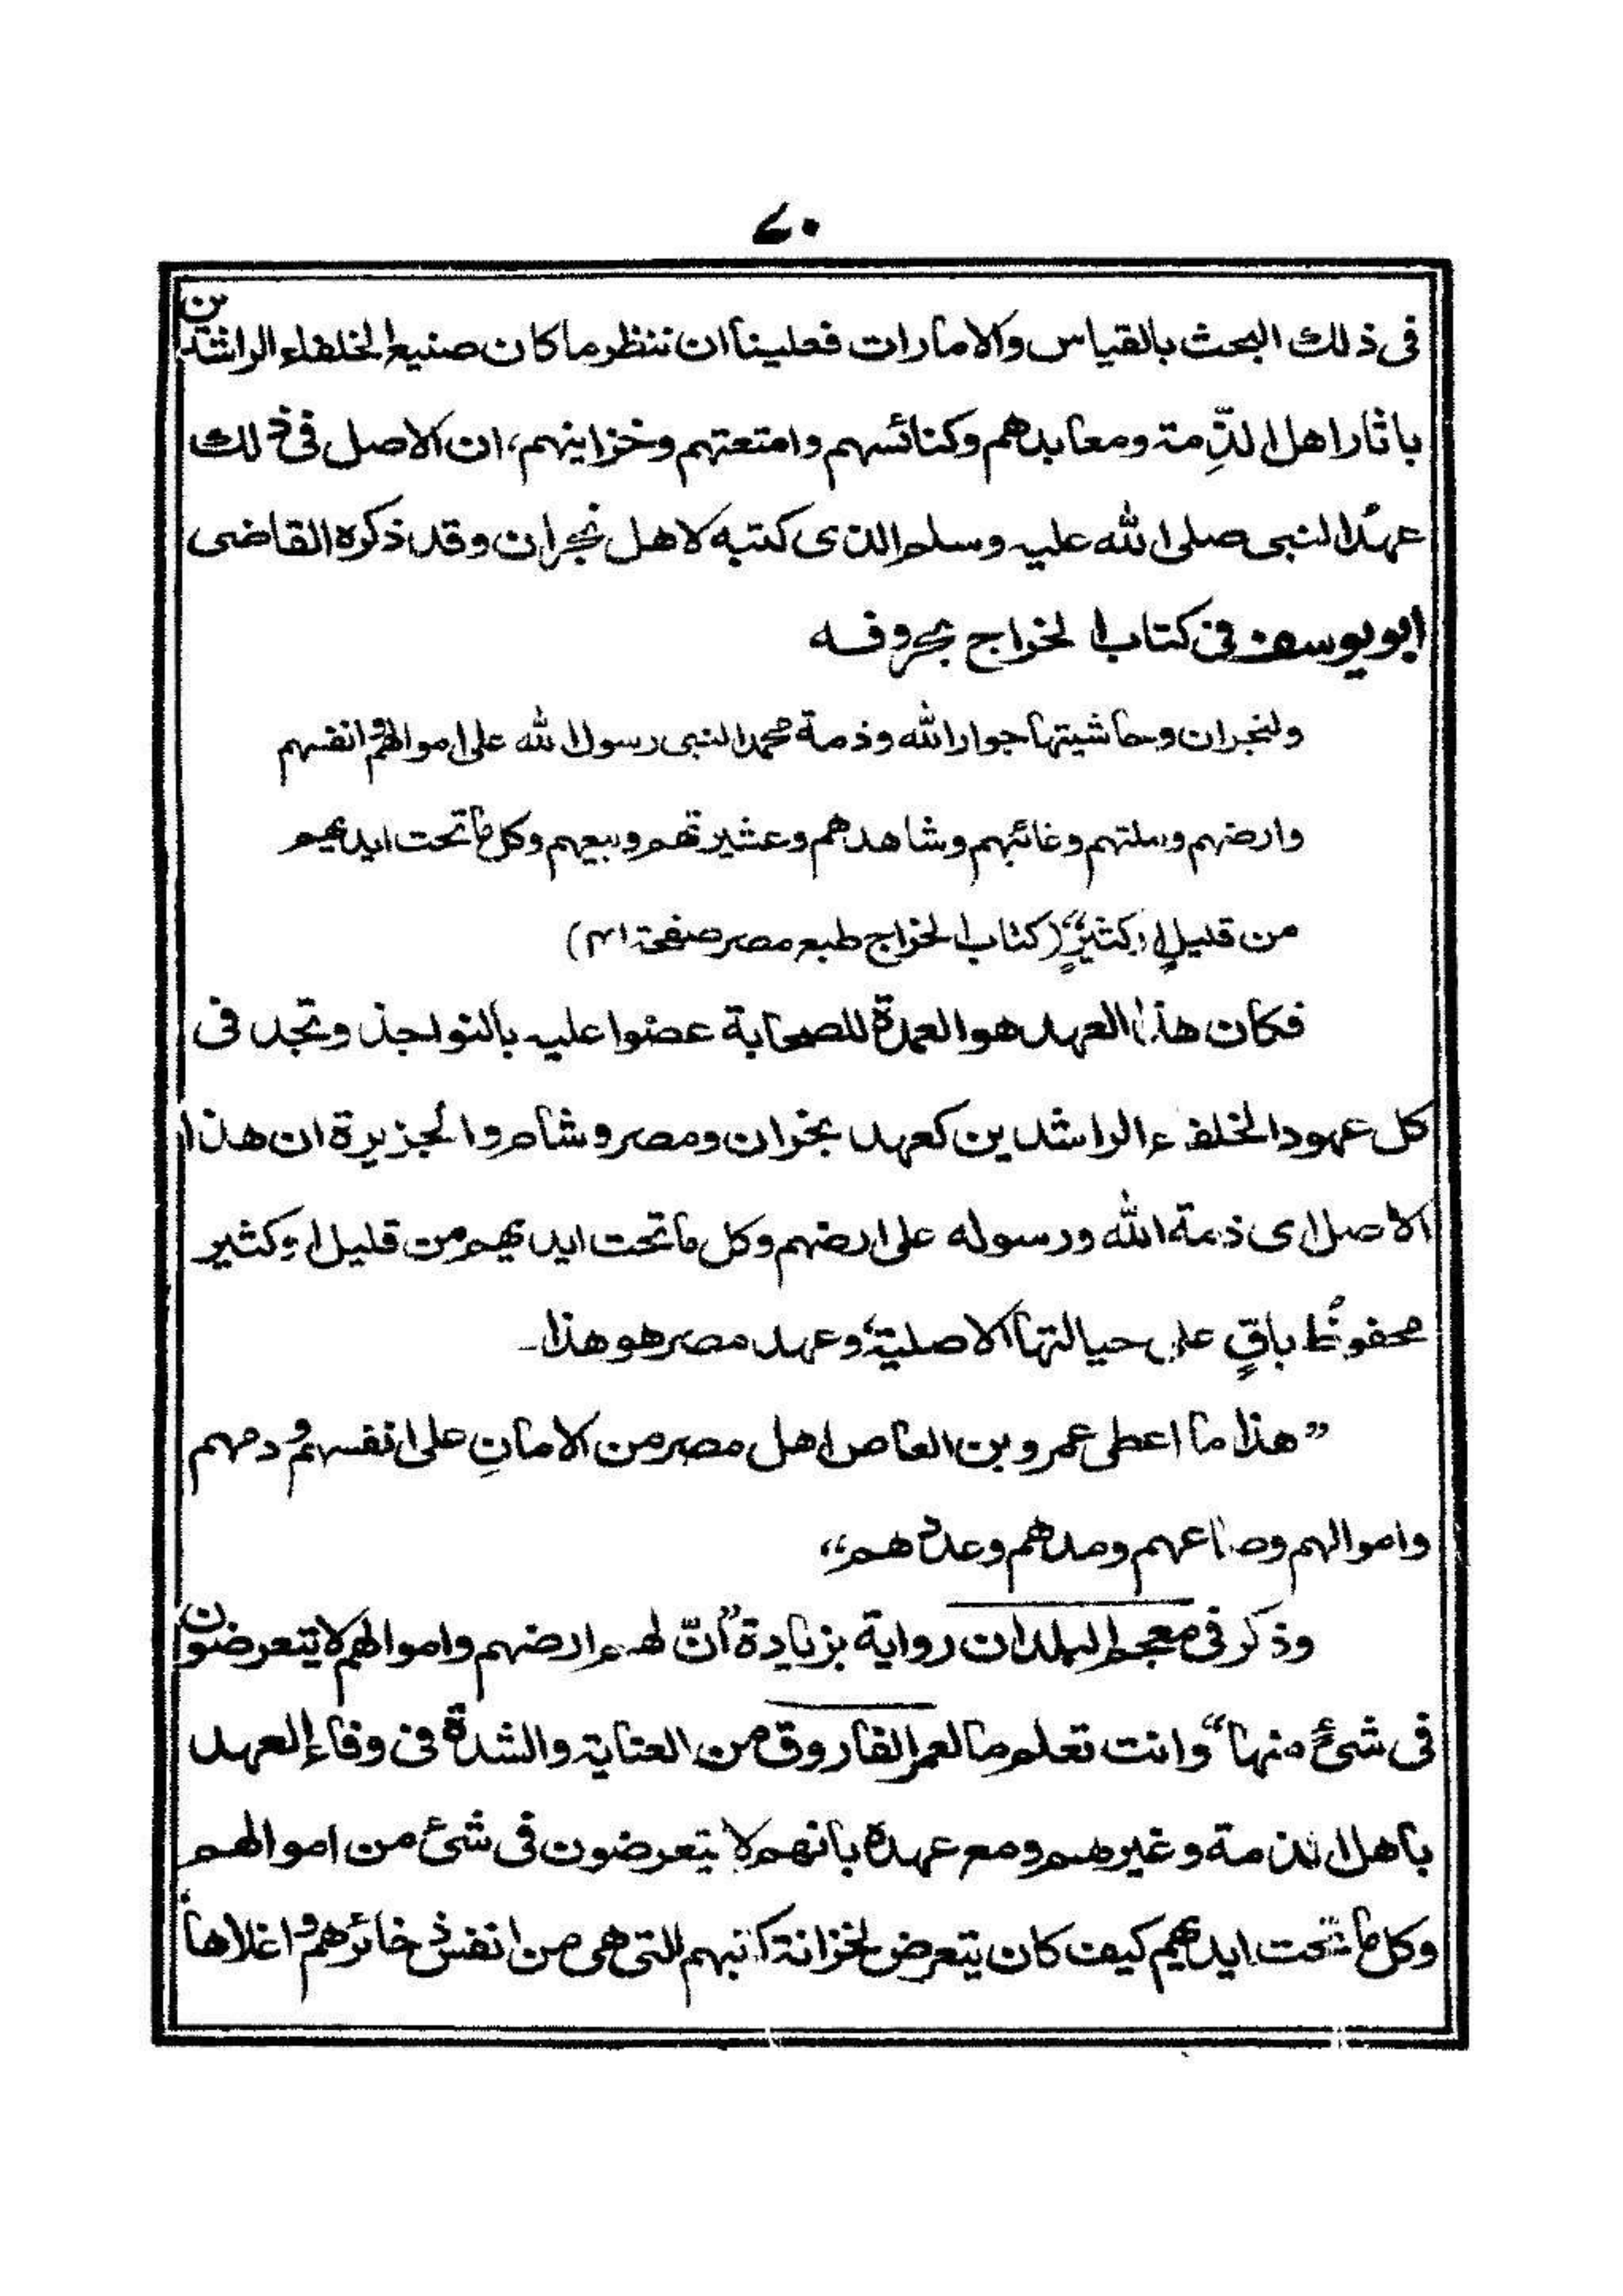 ۷۰
فی ذلك البحث بالقیاس والامارات فعلینا ان ننظر ما كان صنیع الخلفاء الراشدین
باٰثار اهل الذِّمة ومعابدهم وكنائسهم وامتعتهم وخزاینهم، ان الاصل فی ذلك
عهدُ النبی صلی الله علیه وسلم الذی كتبه لاهل نجران وقد ذكره القاضی
ابو یوسف فی كتاب الخراج بحروفه
ولنجران وحاشیتها جوار الله وذمة محمد النبی رسول الله علی اموالهم وانفسهم
وارضهم وملتهم وغائبهم وشاهدهم وعشیرتهم وبیعهم وكل ما تحت ایدیهم
من قلیلٍ او كثیرٍ" (كتاب الخراج طبع مصر صفحة ۴۱)
فكان هذا العهد هو العمدة للصحابة عضوا علیه بالنواجذ وتجد فی
كل عهود الخلفاء الراشدین كعهد نجران ومصر وشام والجزیرة ان هذا
الاصل ای ذمة الله ورسوله علی ارضهم وكل ما تحت ایدیهم من قلیل او كثیر
محفوظٌ باقٍ علی حیالتها الاصلیة، وعهد مصر هو هذا۔
"هذا ما اعطی عمرو بن العاص اهل مصر من الامانِ علی انفسهم ودمهم
واموالهم وصاعهم ومدهم وعددهم"
وذكر فی معجم البلدان روایة بزیادة "اَنّ لهم ارضهم واموالهم لا یتعرضون
فی شیءٍ منها" وانت تعلم ما لعمر الفاروق من العنایة والشدة فی وفاء العهد
باهل الذمة وغیرهم ومع عهده بانهم لا یتعرضون فی شیء من اموالهم
وكل ما تحت ایدیهم كیف كان یتعرض لخزانة كتبهم التی هی من انفس ذخائرهم واغلاها